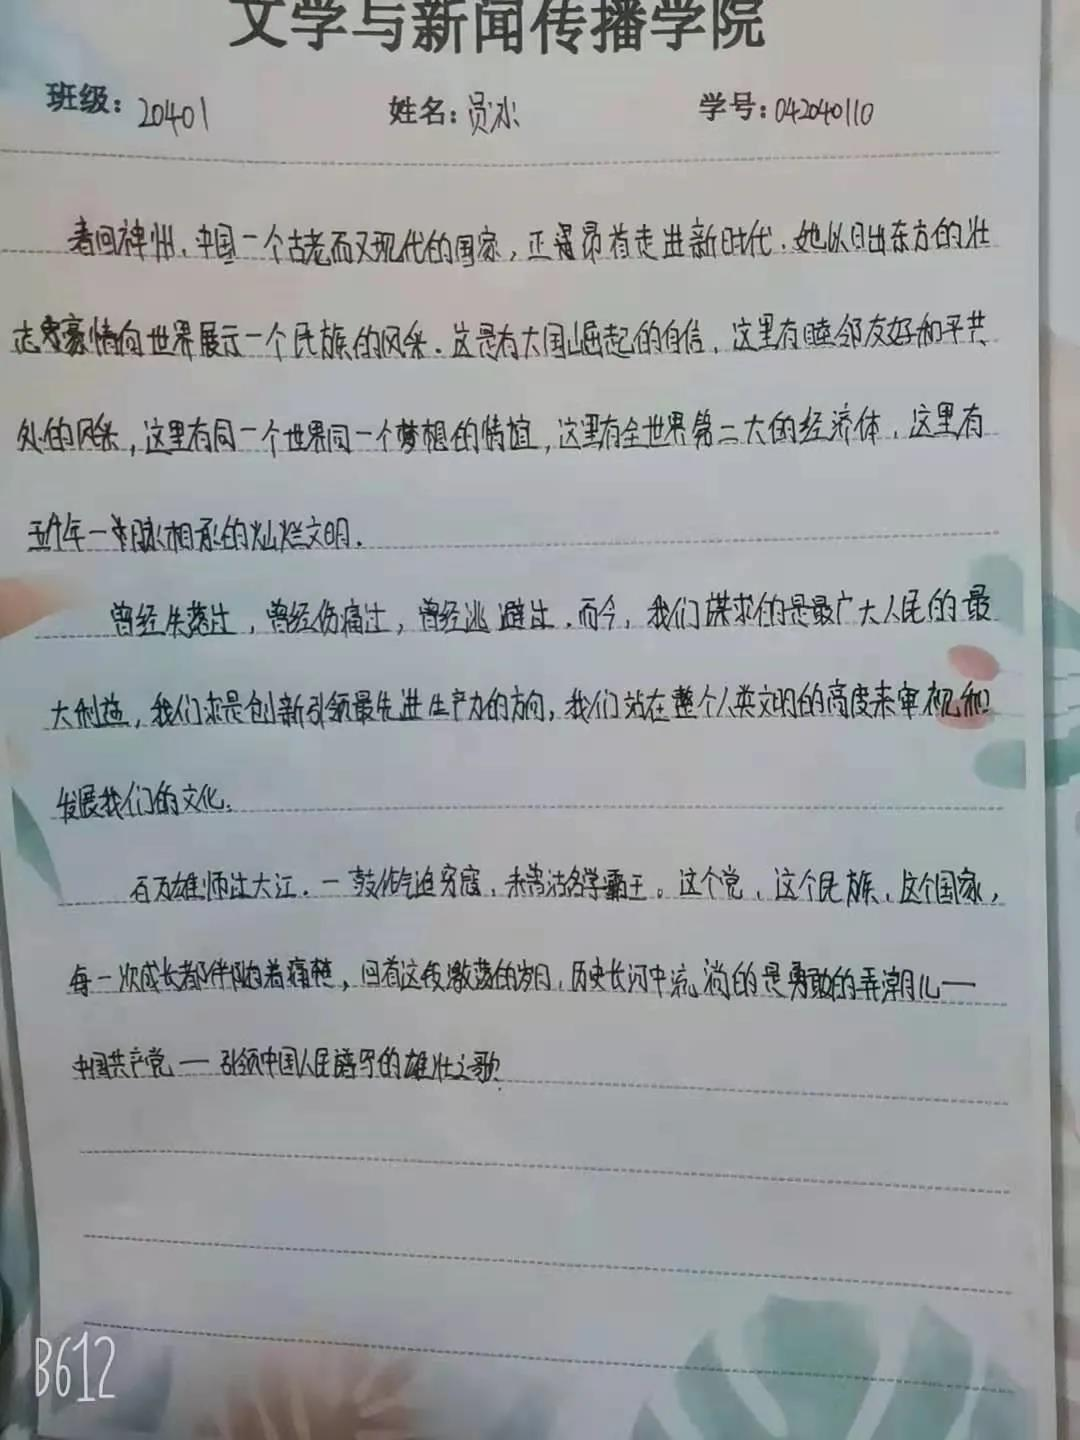 文学与新闻传播学院
班级：20401 姓名：员冰 学号：042040110
看回神州，中国一个古老而又现代的国家，正昂首走进新时代，她以日出东方的壮
志豪情向世界展示一个民族的风采．这是有大国崛起的自信，这里有睦邻友好和平共
处的风采，这里有同一个世界同一个梦想的情谊，这里有全世界第二大的经济体，这里有
五千年一脉相承的灿烂文明．
曾经失落过，曾经伤痛过，曾经逃避过．而今，我们谋求的是最广大人民的最
大利益，我们求是创新引领最先进生产力的方向，我们站在整个人类文明的高度来审视和
发展我们的文化．
百万雄师过大江．一鼓作气追穷寇，未尝沽名学霸王。这个党，这个民族，这个国家，
每一次成长都伴随着痛楚，回首这段激荡的岁月，历史长河中流淌的是勇敢的弄潮儿——
中国共产党——引领中国人民谱写的雄壮之歌．
B612